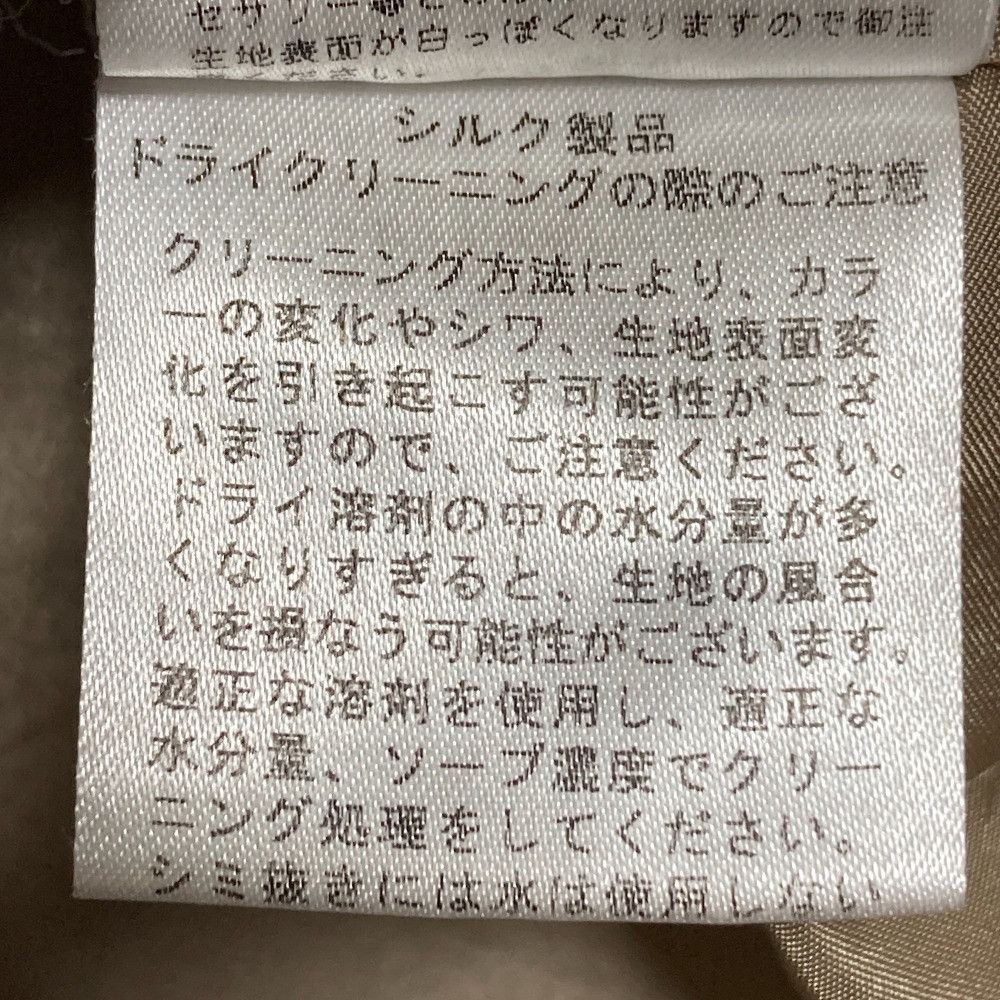 セサリー等
生地表面が白っぽくなりますので御注
シルク製品
ドライクリーニングの際のご注意
クリーニング方法により、カラ
ーの変化やシワ、生地表面変
化を引き起こす可能性がござ
いますので、ご注意ください。
ドライ溶剤の中の水分量が多
くなりすぎると、生地の風合
いを損なう可能性がございます。
適正な溶剤を使用し、適正な
水分量、ソープ濃度でクリー
ニング処理をしてください。
シミ抜きには水は使用しない